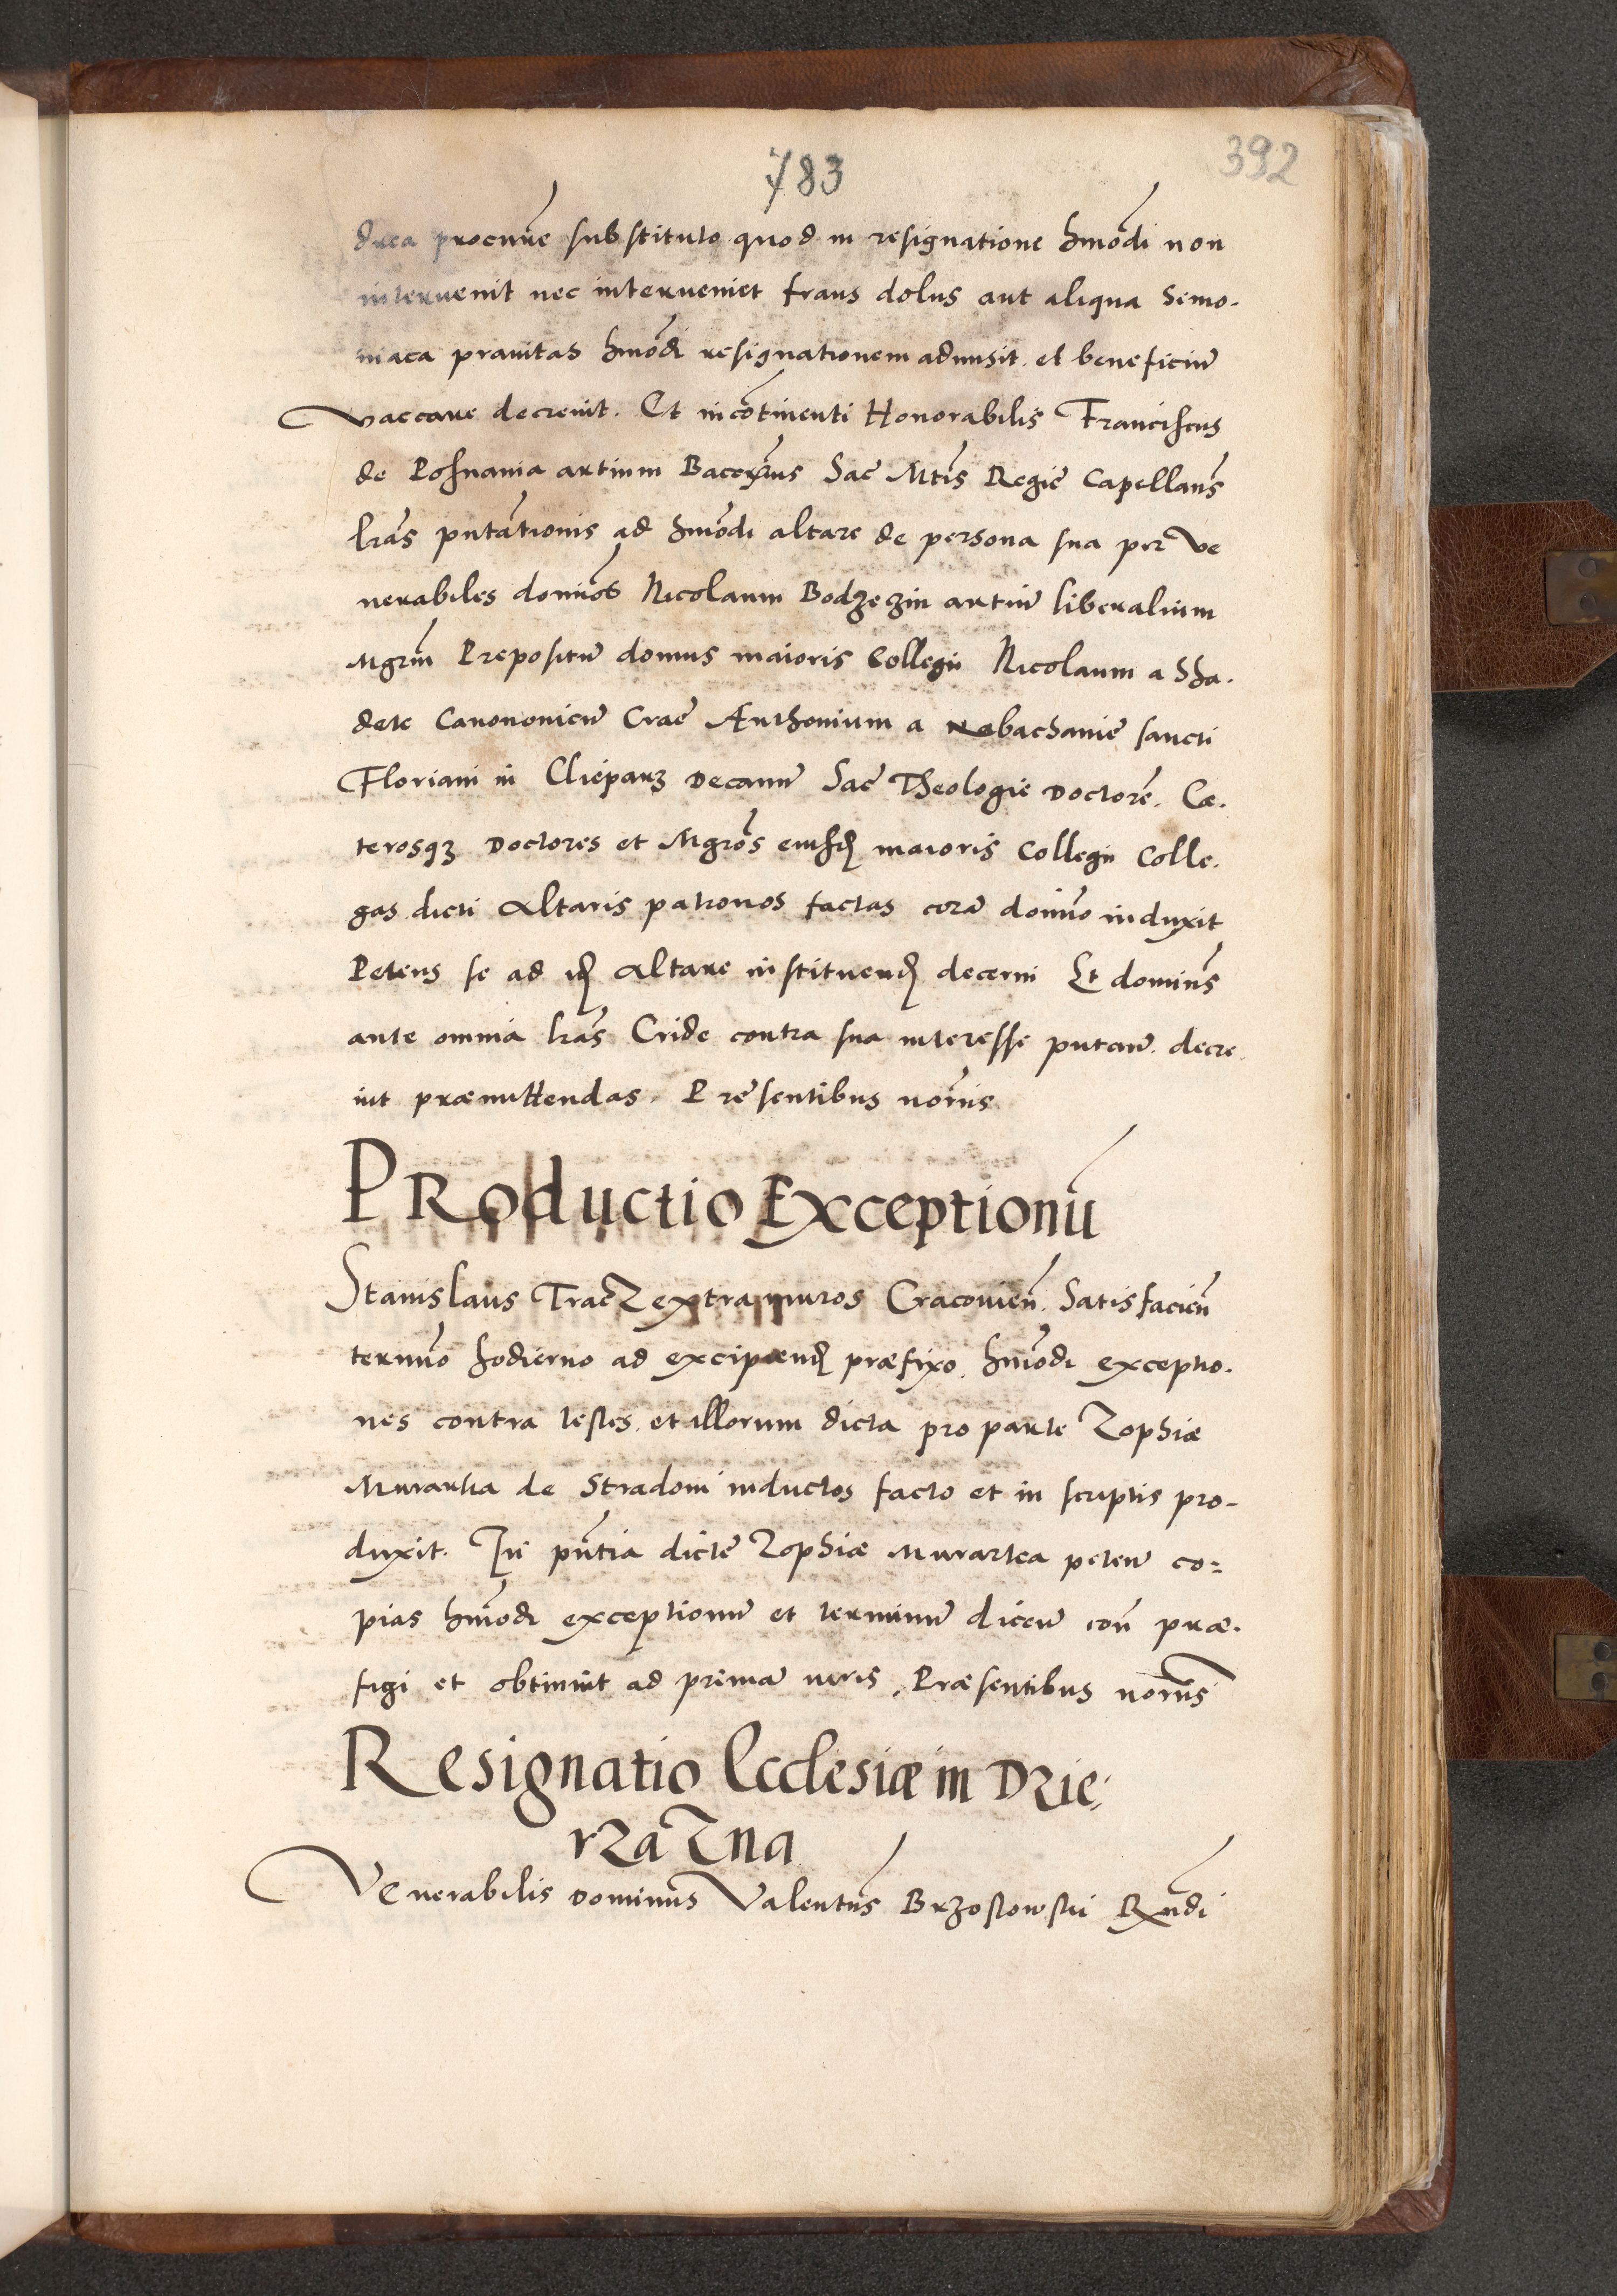 783
392
drea procurē substituto quod in resignatione hmōdi non
intervenit nec interveniet fraus dolus aut aliqua Simo-
niaca pravitas hmōdi resignationem admisit et beneficiū
vaccare decrevit. Et incōtinenti Honorabilis Franciscus
de Posnania artium Baccrius Sac̄ Mtis Regiē Capellan̄s
lrās pntātionis ad hmōdi altare de persona sua per Ve
nerabiles domīos Nicolaum Bodzeczin artiū liberalium
Mgrm̄ Prepositū domus maioris Collegii Nicolaum a Sha-
dek Canononicū Craē Anthonium a Nabachanie sancti
Floriani in Cliepardz Decanū Sac̄ Theologie Doctorē. Cæ-
terosqz Doctores et Mgrōs eiusdē maioris Collegii Colle-
gas dicti Altaris patronos factas corā domīno induxit
Petens se ad id Altare instituend decerni Et dominūs
ante omnia lrās Cride contra sua interesse putan̄. decre
vit præmittendas. Præsentibus norīis
PRoductio Exceptionū
Stanislaus Tracz extra muros Cracovien̄. Satisfacien̄
termīno hodierno ad excipiend præfixo. hmōdi exceptio-
nes contra testes et illorum dicta pro parte Zophiæ
Murarka de Stradom inductos facto et in scriptis pro-
duxit. In pn̄tia dictē Zophiæ Murarka peten̄ co=
pias hmōdi exceptionū et terminū dicen̄ con̄ præ-
figi et obtinuit ad primā iuris. Præsentibus norīis
Resignatio Ecclesiæ in Dzie-
rzazna
Venerabilis Dominus Valentin̄s Brzostowski Rn̄di